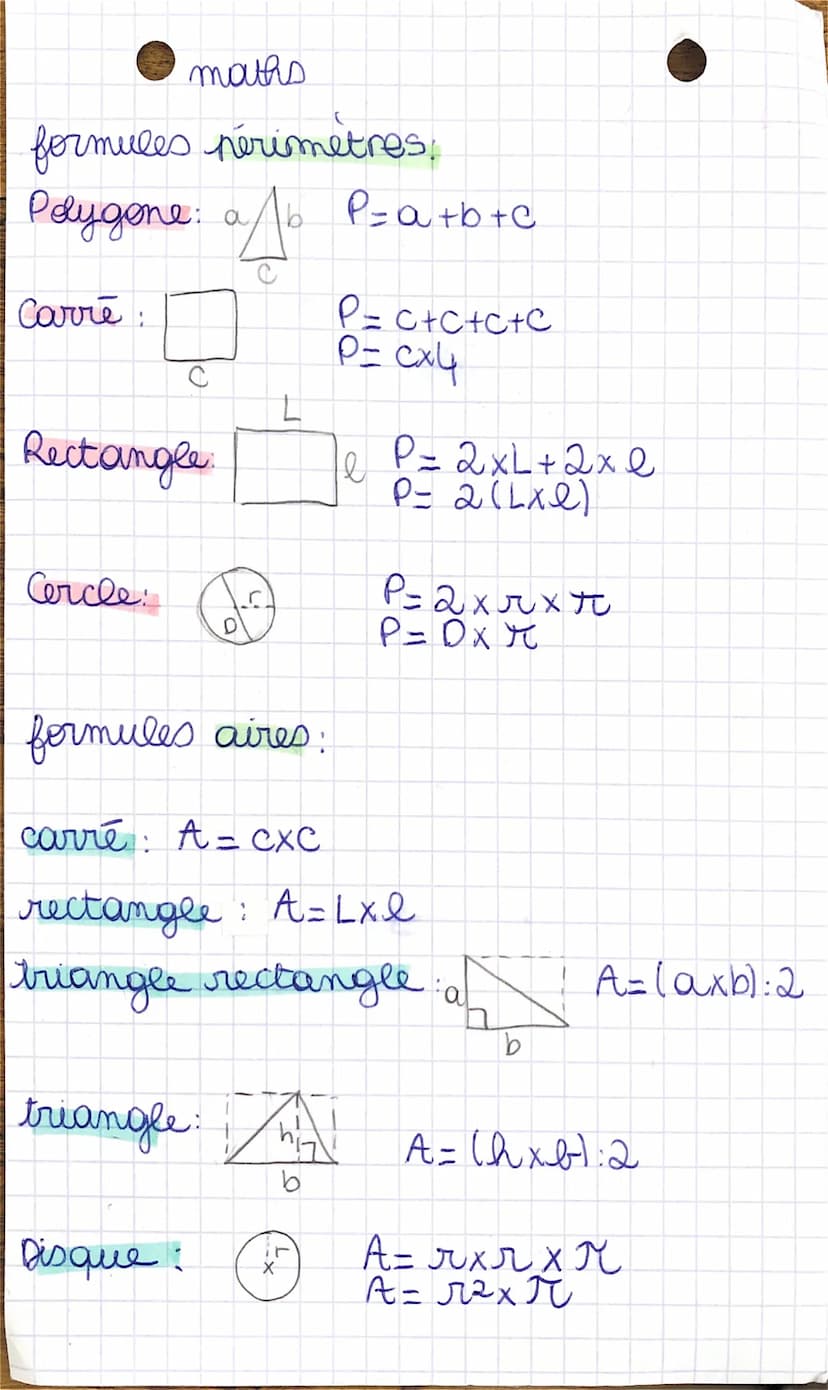 maths
formules périmètres:
Polygone: a b c P=a+b+c
Carré: c P=c+c+c+c
P=cx4
Rectangle: L l P=2xL+2xl
P=2(Lxl)
Cercle: r D P=2xrxπ
P=Dxπ
formules aires:
carré: A=cxc
rectangle: A=Lxl
triangle rectangle: a b A=(axb):2
triangle: h b A=(hxb):2
Disque: r x A=rxrxπ
A=r²xπ